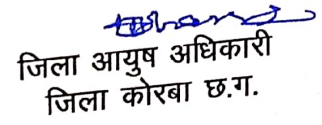 जिला आयुष अधिकारी
जिला कोरबा छ.ग.